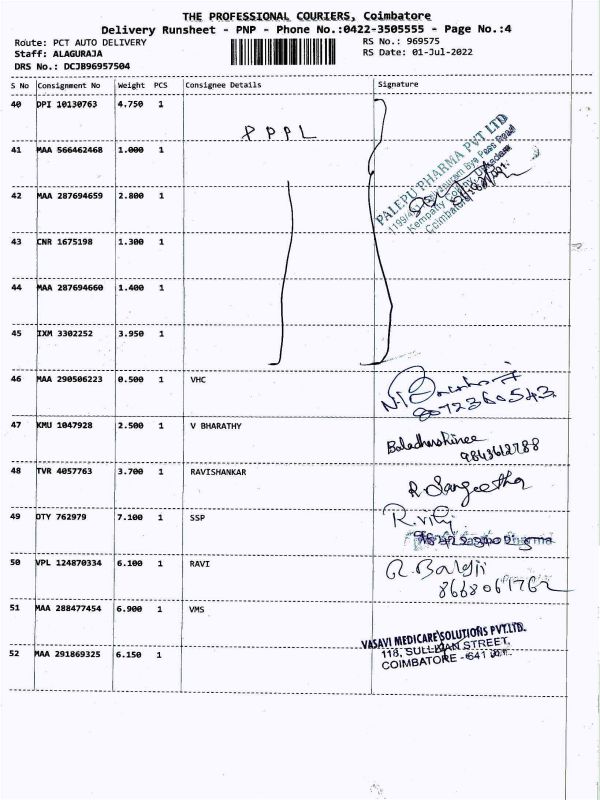 THE PROFESSIONAL COURIERS, Coimbatore
Delivery Runsheet - PNP - Phone No.:0422-3505555 - Page No.:4
Route: PCT AUTO DELIVERY RS No.: 969575
Staff: ALAGURAJA RS Date: 01-Jul-2022
DRS No.: DCJB96957504
S No Consignment No Weight PCS Consignee Details Signature
40 DPI 10130763 4.750 1
P P P L
PALEPU PHARMA PVT LTD
41 MAA 566462468 1.000 1
42 MAA 287694659 2.800 1
Coimbatore
43 CNR 1675198 1.300 1
44 MAA 287694660 1.400 1
45 IXM 3302252 3.950 1
46 MAA 290506223 0.500 1 VHC
8072360543
47 KMU 1047928 2.500 1 V BHARATHY
9843612788
48 TVR 4057763 3.700 1 RAVISHANKAR
R Sangeetha
49 DTY 762979 7.100 1 SSP
R. Viji
50 VPL 124870334 6.100 1 RAVI
R. Balaji
51 MAA 288477454 6.900 1 VMS
VASAVI MEDICARE SOLUTIONS PVT.LTD.
118, SULLIVAN STREET,
COIMBATORE - 641
52 MAA 291869325 6.150 1